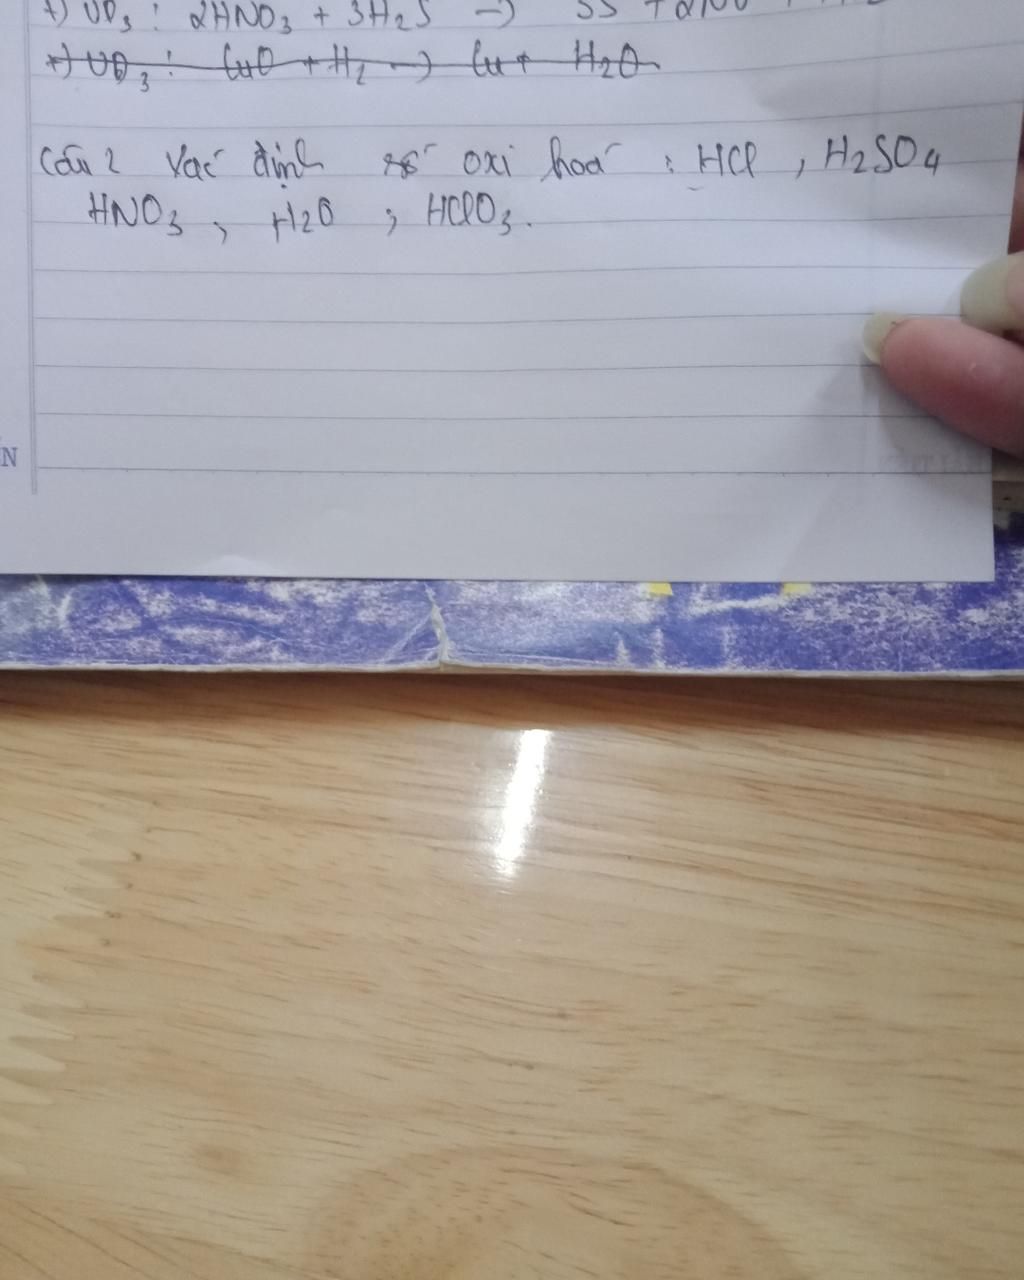 +) VD3 : 2HNO3 + 3H2S -> 3S + 2NO +
+) VD3 : CuO + H2 -> Cu + H2O
Câu 2 Xác định số oxi hoá : HCl , H2SO4
HNO3 ; H2O ; HClO3.
N